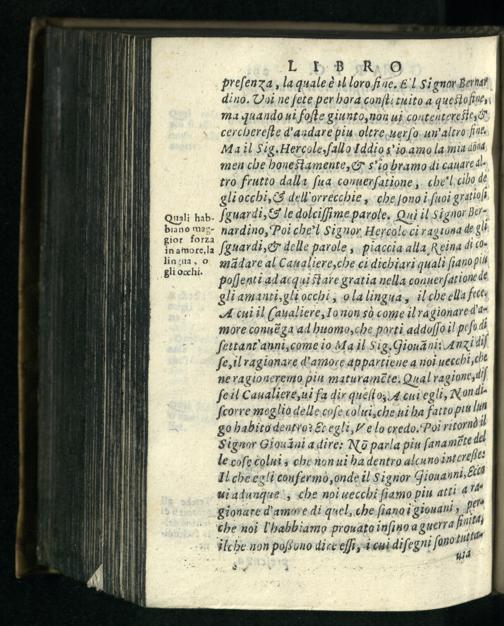 LIBRO
presenza, la quale è il loro fine. E'l Signor Bernar
dino. Voi ne sete per hora constituito a questo fine,
ma quando ui foste giunto, non ui contentereste, &
cerchereste d'andare piu oltre uerso un'altro fine.
Ma il Sig. Hercole, sallo Iddio s'io amo la mia dōna
men che honestamente, & s'io bramo di cauare al-
tro frutto dalla sua conuersatione, che'l cibo de
gli occhi, & dell'orrecchie, che sono i suoi gratiosi
sguardi, & le dolcissime parole. Qui il Signor Ber-
nardino, Poi che'l Signor Hercole ci ragiona de gli
sguardi, & delle parole, piaccia alla Reina di co-
mādare al Caualiere, che ci dichiari quali siano piu
possenti ad acquistare gratia nella conuersatione de
gli amanti, gli occhi, o la lingua, il che ella fece.
A cui il Caualiere, Io non sò come il ragionare d'a-
more conuēga ad huomo, che porti addosso il peso di
settant'anni, come io Ma il Sig. Giouāni: Anzi dis
se, il ragionare d'amore appartiene a noi uecchi, che
ne ragioneremo piu maturamēte. Qual ragione, dis
se il Caualiere, ui fa dir questo? A cui egli, Non di-
scorre meglio delle cose colui, che ui ha fatto piu lun
go habito dentro? Et egli, Ve lo credo. Poi ritornò il
Signor Giouāni a dire: Nō parla piu sanamēte del
le cose colui, che non ui ha dentro alcuno interesse?
Il che egli confermò, onde il Signor Giouanni, Ecco
ui adunque, che noi uecchi siamo piu atti a ra-
gionare d'amore di quel, che siano i giouani, per-
che noi l'habbiamo prouato insino a guerra finita,
ilche non possono dire essi, i cui disegni sono tutta-
uia
Quali hab-
biano mag-
gior forza
in amore, la
lingua, o
gli occhi.